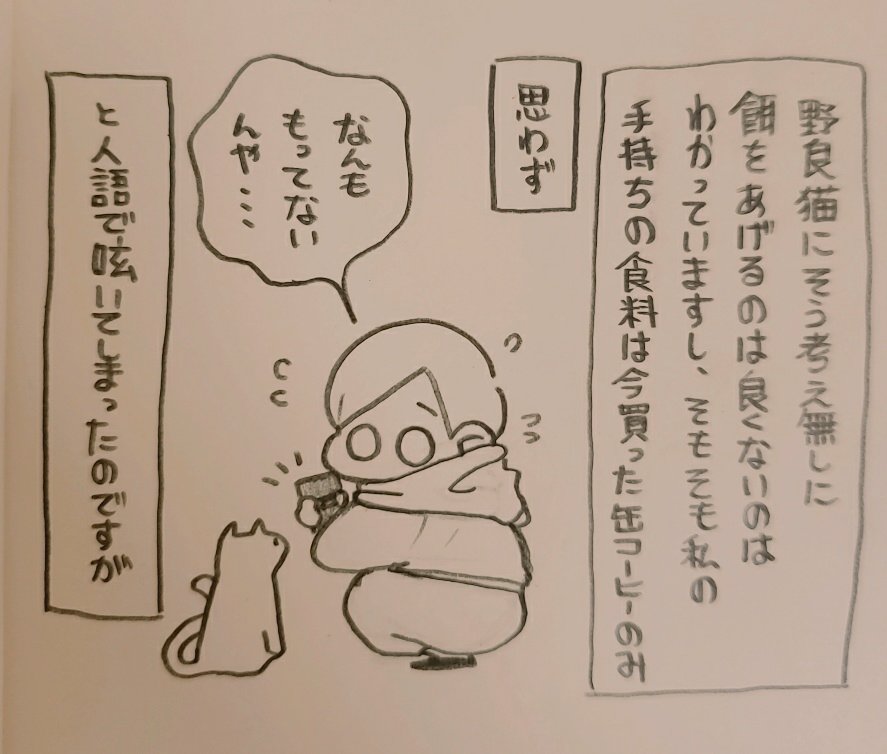 野良猫にそう考え無しに
餌をあげるのは良くないのは
わかっていますし、そもそも私の
手持ちの食料は今買った缶コーヒーのみ
思わず
なんも
もってない
んや…
と人語で呟いてしまったのですが